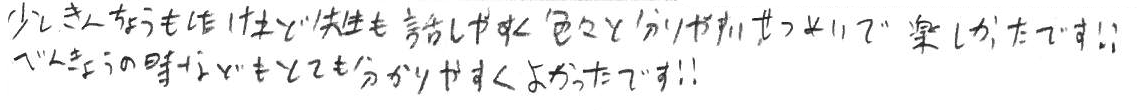 少しきんちょうもしたけれど先生も話しやすく色々と分りやすいせつめいで楽しかたです!!
べんきょうの時などもとても分かりやすくよかったです!!